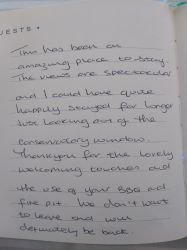 UESTS •
This has been an
amazing place to stay.
The views are spectacular
and I could have quite
happily stayed for longer
just looking out of the
conservatory window.
Thankyou for the lovely
welcoming touches and
the use of your BBQ and
fire pit. We don't want
to leave and will
definately be back.